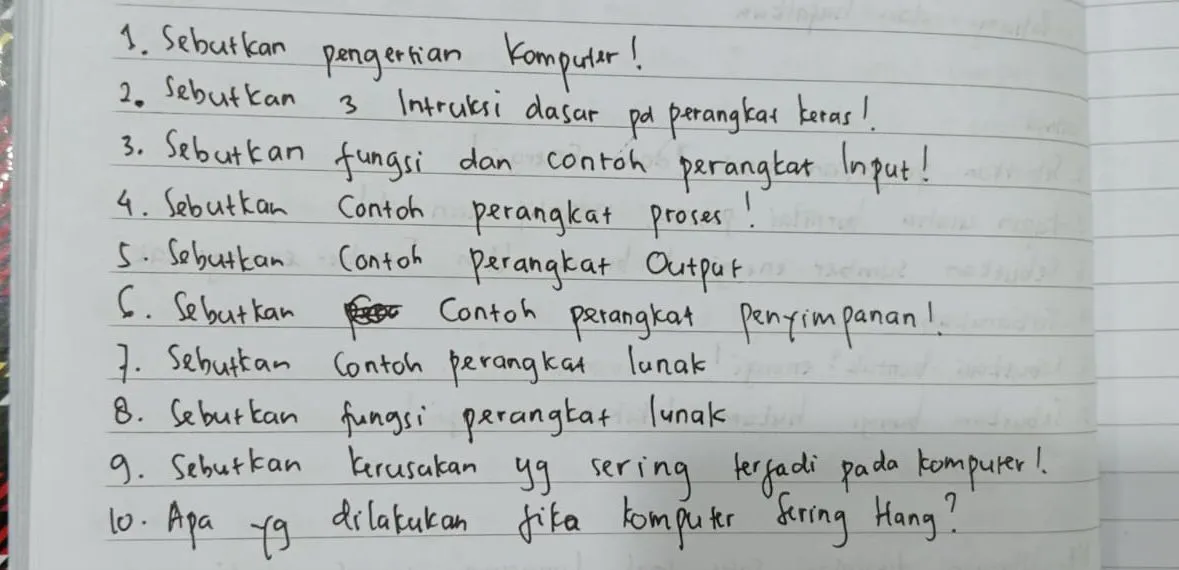 1. Sebutkan pengertian komputer!
2. Sebutkan 3 Intruksi dasar pd perangkat keras!
3. Sebutkan fungsi dan contoh perangkat Input!
4. Sebutkan Contoh perangkat proses!
5. Sebutkan Contoh perangkat Output
6. Sebutkan Contoh perangkat penyimpanan!
7. Sebutkan Contoh perangkat lunak
8. Sebutkan fungsi perangkat lunak
9. Sebutkan kerusakan yg sering terjadi pada komputer!
10. Apa yg dilakukan jika komputer Sering Hang?